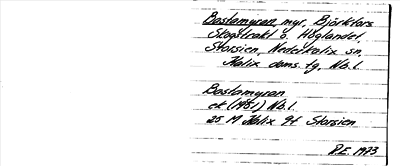 Bastamyran, myr, Björkfors
Skogstrakt o. Höglandet,
Storsien, Nederkalix sn,
Kalix doms. tg, Nb.l.
Bastamyran
ek (1951) Nb.l.
25 M Kalix 9f Storsien
RE 1973